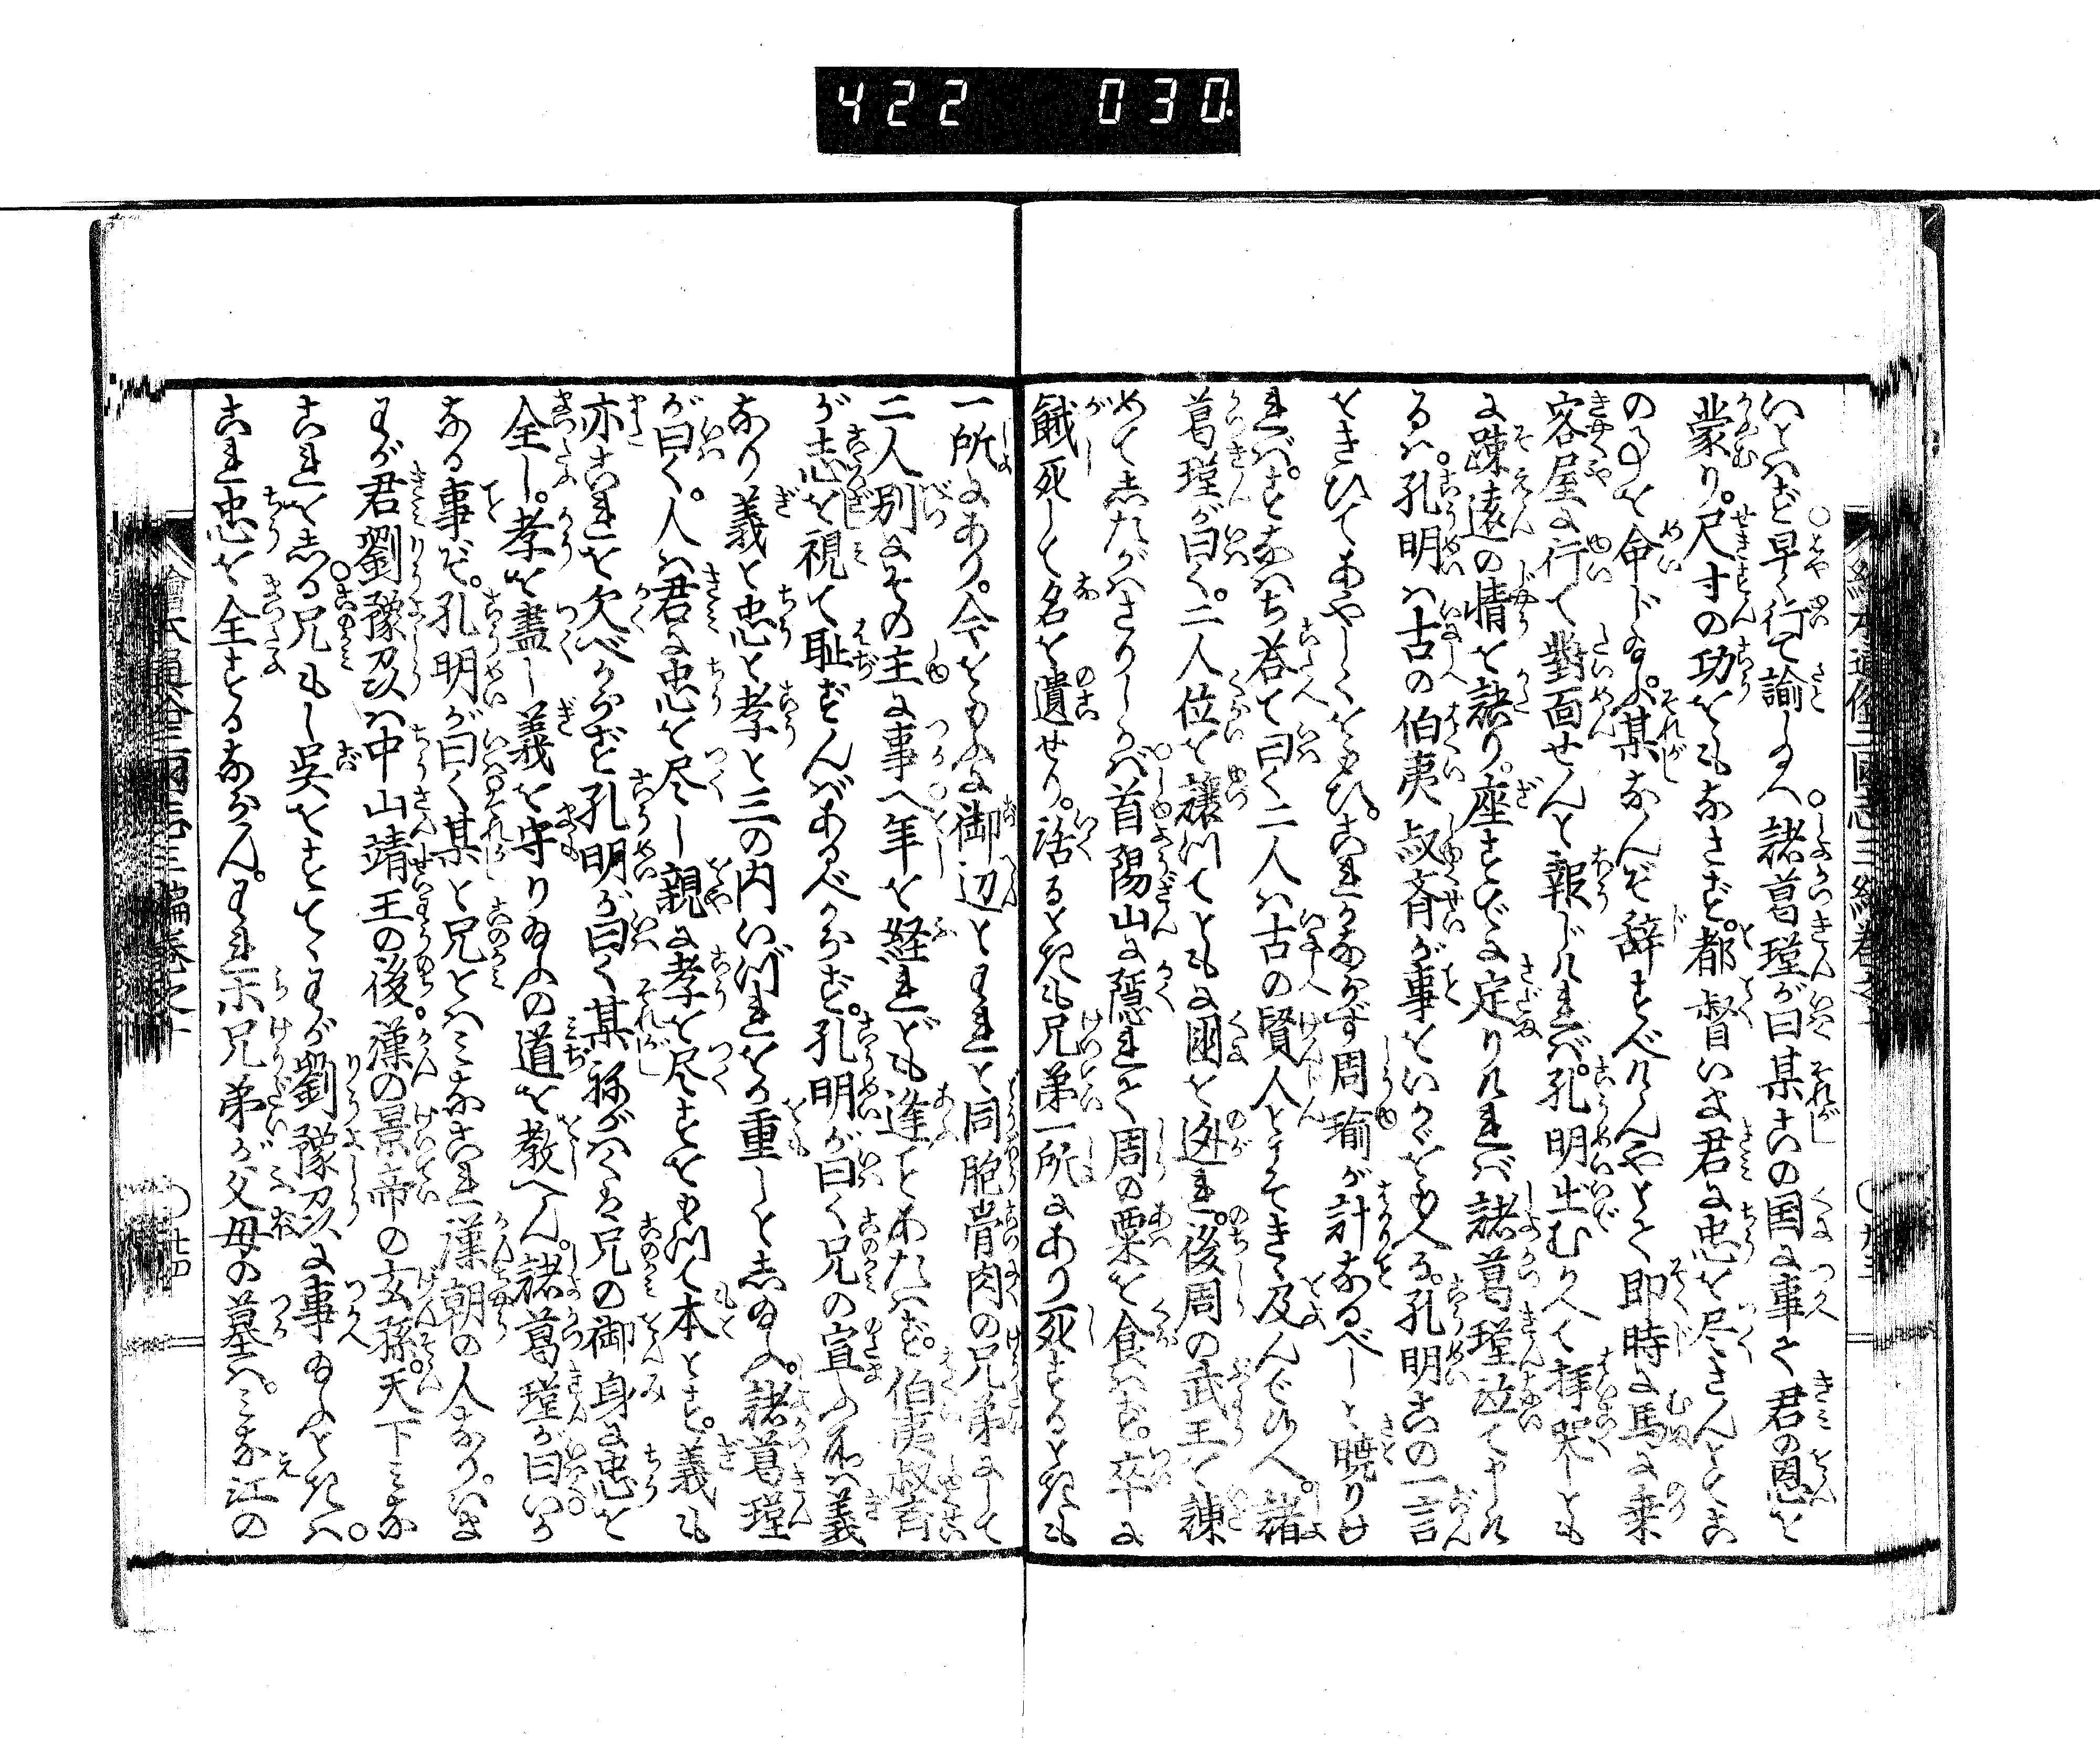 422 030
いとはず早く行て諭し給へ諸葛瑾が曰某この国に事て君の恩を
蒙り。尺寸の功をもなさず。都督いま君に忠を尽さんとこ
の事を命じ給ふ。某なんぞ辞すべけんやとて即時に馬に乗
客屋に行て對面せんと報じければ。孔明出むかへて拝哭しとも
に踈遠の情を訣り。座すでに定りければ諸葛瑾泣て申け
るは。孔明は古の伯夷叔斉が事をいかゞ思へる。孔明この一言
をきひてあやしくおもひ。これかならず周瑜が計なるべしと暁りけ
れば。すなはち荅て曰く二人は古の賢人とこそきゝ及んで候へ。諸
葛瑾が曰く。二人位を譲つてともに國を迯れ。後周の武王を諫
めてしたがはざりしかば首陽山に隱れて周の粟を食はず。卒に
餓死して名を遺せり。活るときも兄弟一所にあり死するときも
一所にあり。今おもふに御辺とわれと同胞骨肉の兄弟にして
二人別にその主に事へ年を経れども逢ことあたはず。伯夷叔斉
が志を視て恥ずんばあるべからず。孔明が曰く兄の宣ふ所は義
なり義と忠と孝と三の内いづれをか重しとし給ふ。諸葛瑾
が曰く。人は君に忠を尽し親に孝を尽すをもつて本とす。義も
亦これを欠べからず孔明が曰く某ねがはくは兄の御身に忠を
全し。孝を盡し義を守り給ふの道を教へん。諸葛瑾が曰いか
なる事ぞ。孔明が曰く某と兄とはみなこれ漢朝の人なり。いま
わが君劉豫州は中山靖王の後。漢の景帝の玄孫。天下みな
これをしる兄もし呉をすてゝわが劉豫州に事給ふときは。
これ忠を全するならん。われ〳〵兄弟が父母の墓は。みな江の